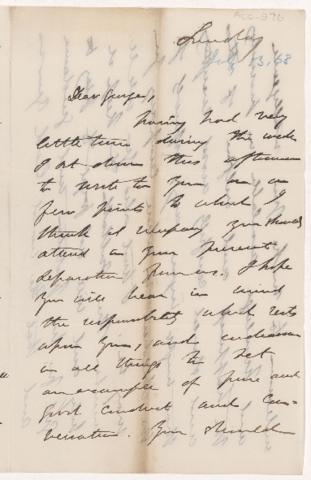 Sunday
13. 68
Dear George,
Having had very
little time during the week
I sit down this afternoon
to write to you on a
few points to which I
think it necessary you should
attend in your present
I hope
you will bear in mind
the responsibility which rests
upon you, and endeavour
in all things to set
an example of pure and
good conduct and con-
versation. You should